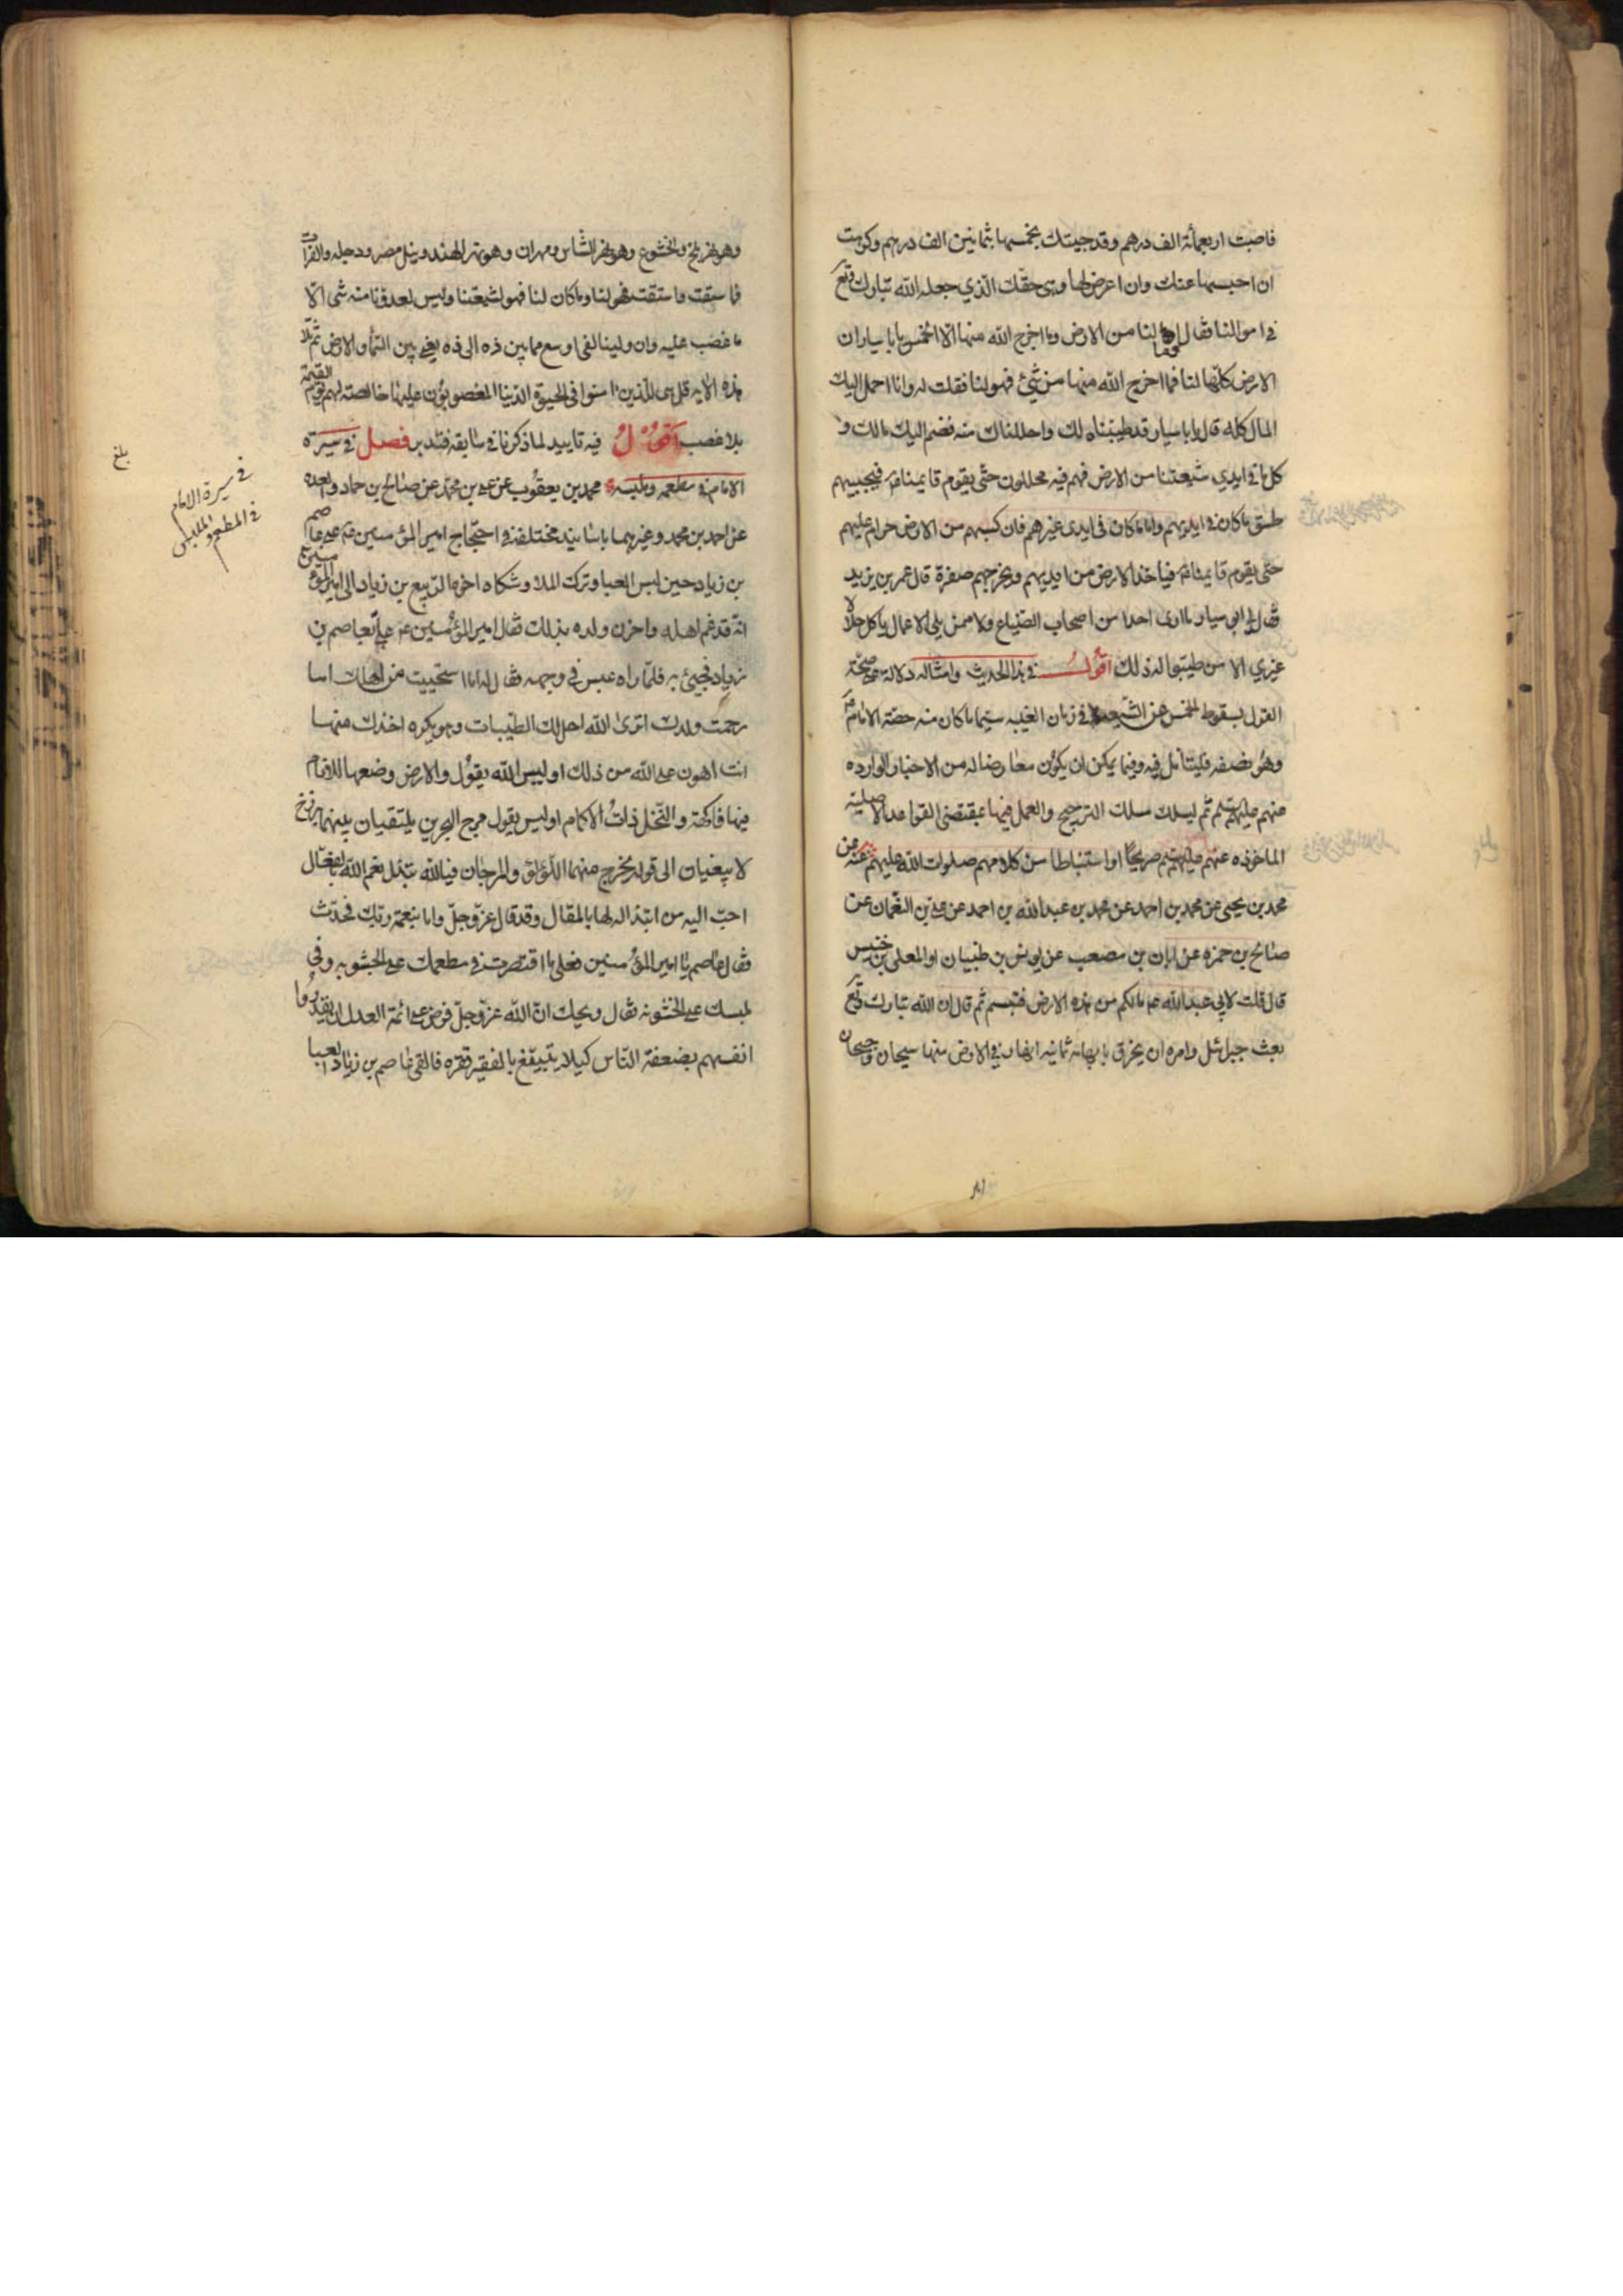 فاصبت اربعمائة الف درهم وقد جيتك بخمسها بثمانين الف درهم وكرهت
ان احبسها عنك وان اعرض لها وهى حقك الذي جعله الله تبارك وتع
في اموالنا فقال او ما لنا من الارض وما اخرج الله منها الا الخمس يابا سيار ان
الارض كلها لنا فما اخرج الله منها من شئ فهو لنا فقلت له وانا احمل اليك
المال كله قال يابا سيار قد طيبناه لك واحللناك منه فضم اليك مالك و
كل ما في ايدي شيعتنا من الارض فهم فيه محللون حتى يقوم قايمنا فيجبيهم
طسق ما كان في ايديهم واما ما كان فى ايدى غيرهم فان كسبهم من الارض حرام عليهم
حتى يقوم قايمنا فياخذ الارض من ايديهم ويخرجهم صفرة قال عمر بن يزيد
فقال لي ابو سيار ما ارى احدا من اصحاب الضياع ولا ممن يلي الاعمال ياكل حلالا
غيري الا من طيبوا له ذلك اقول في هذا الحديث وامثاله دلالة على صحة
القول بسقوط الخمس عن الشيعة في زمان الغيبه سيما ما كان منه حصة الامام
وهو نصفه فليتامل فيه وفيما يمكن ان يكون معارضا له من الاخبار الوارده
منهم عليهم ثم ليسلك مسلك الترجيح والعمل فيها بمقتضى القواعد الاصلية
الماخوذه عنهم صريحا او استنباطا من كلامهم صلوات الله عليهم عن
محمد بن يحيى عن محمد بن احمد عن محمد بن عبد الله بن احمد عن على بن النعمان عن
صالح بن حمزه عن ابان بن مصعب عن يونس بن ظبيان او المعلى بن خنيس
قال قلت لابي عبد الله ع ما لكم من هذه الارض فتبسم ثم قال ان الله تبارك وتع
بعث جبرئيل وامره ان يخرق بابهامه ثمانيه انهار في الارض منها سيحان وجيحان
وهو نهر بلخ والخشوع وهو نهر الشاس ومهران وهو نهر الهند ونيل مصر ودجله والفرات
فما سقت واستقت فهو لنا وما كان لنا فهو لشيعتنا وليس لعدونا منه شى الا
ما غصب عليه وان ولينا لفى اوسع مما بين ذه الى ذه يعني بين السماء والارض ثم تلا
هذه الايه قل هى للذين امنوا فى الحيوة الدنيا المغصوبون عليها خالصة لهم يوم القيمة
بلا غصب اقول فيه تاييد لما ذكرنا في سابقه فتدبر فصل في سيرة
الامام في مطعمه وملبسه محمد بن يعقوب عن علي بن محمد عن صالح بن حماد والعده
عن احمد بن محمد وغيرهما باسانيد مختلفة في احتجاج امير المؤمنين ع على عاصم
بن زياد حين لبس العبا وترك الملا وشكاه اخوه الربيع بن زياد الى امير المؤمنين ع
انه قد غم اهله واحزن ولده بذلك فقال امير المؤمنين ع على بعاصم بن
زياد فجيئ به فلما راه عبس في وجهه فقال له اما استحييت من اهلك اما
رحمت ولدك اترى الله احل لك الطيبات وهو يكره اخذك منها
انت اهون على الله من ذلك او ليس الله يقول والارض وضعها للانام
فيها فاكهة والنخل ذات الاكمام او ليس يقول مرج البحرين يلتقيان بينهما برزخ
لا يبغيان الى قوله يخرج منهما اللؤلؤ والمرجان فبالله بتذل نعم الله بالفعال
احب اليه من ابتذاله لها بالمقال وقد قال عز وجل واما بنعمة ربك فحدث
فقال عاصم يا امير المؤمنين فعلى ما اقتصرت في مطعمك على الجشوبه وفي
ملبسك على الخشونه فقال ويحك ان الله عز وجل فرض على ائمة العدل ان يقدروا
انفسهم بضعفة الناس كيلا يتبيغ بالفقير فقره فالقى عاصم بن زياد العبا
بلغ
في سيرة الامام
في المطعم والملبس